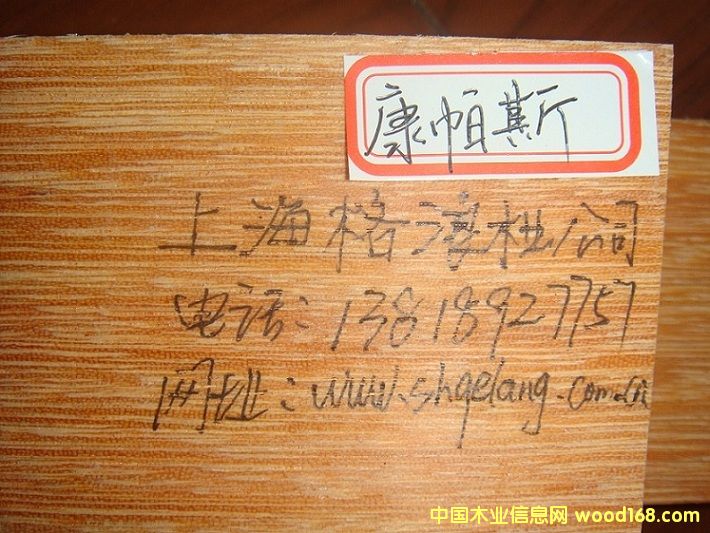 康帕斯
上海格浪木业公司
电话:13818927757
网址:www.shgelang.com.cn
中国木业信息网 wood168.com